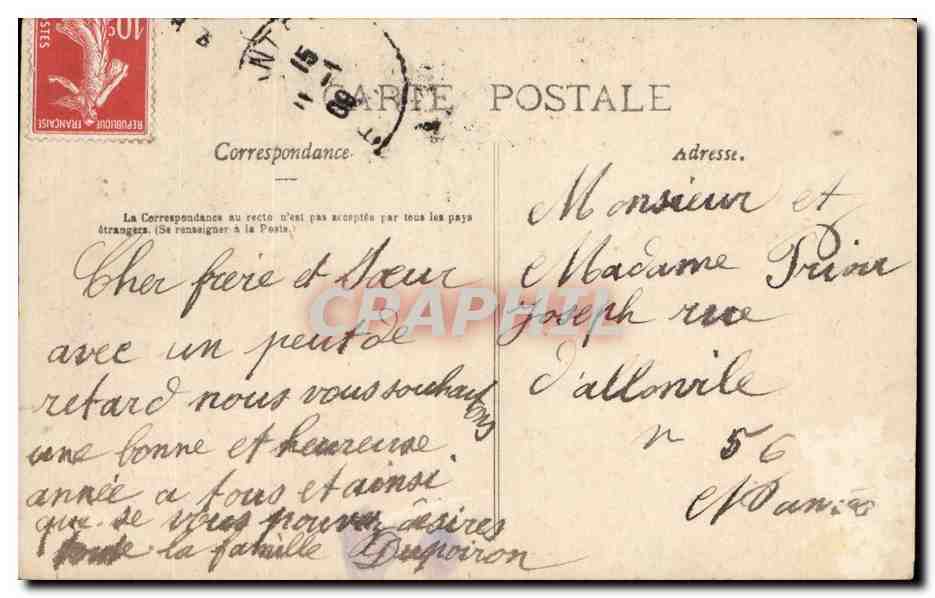 10c
POSTES
REPUBLIQUE FRANÇAISE
15
09
CARTE POSTALE
Correspondance.
La Correspondance au recto n'est pas acceptée par tous les pays
étrangers. (Se renseigner à la Poste.)
Cher frère et Sœur
avec un peut de
retard nous vous souhait
ons
une bonne et heureuse
année a tous et ainsi
que se vous pouvez désires
la famille Dupoiron
Adresse.
Monsieur et
Madame Prieur
Joseph rue
d'allonvile
n 56
CRAPHIL